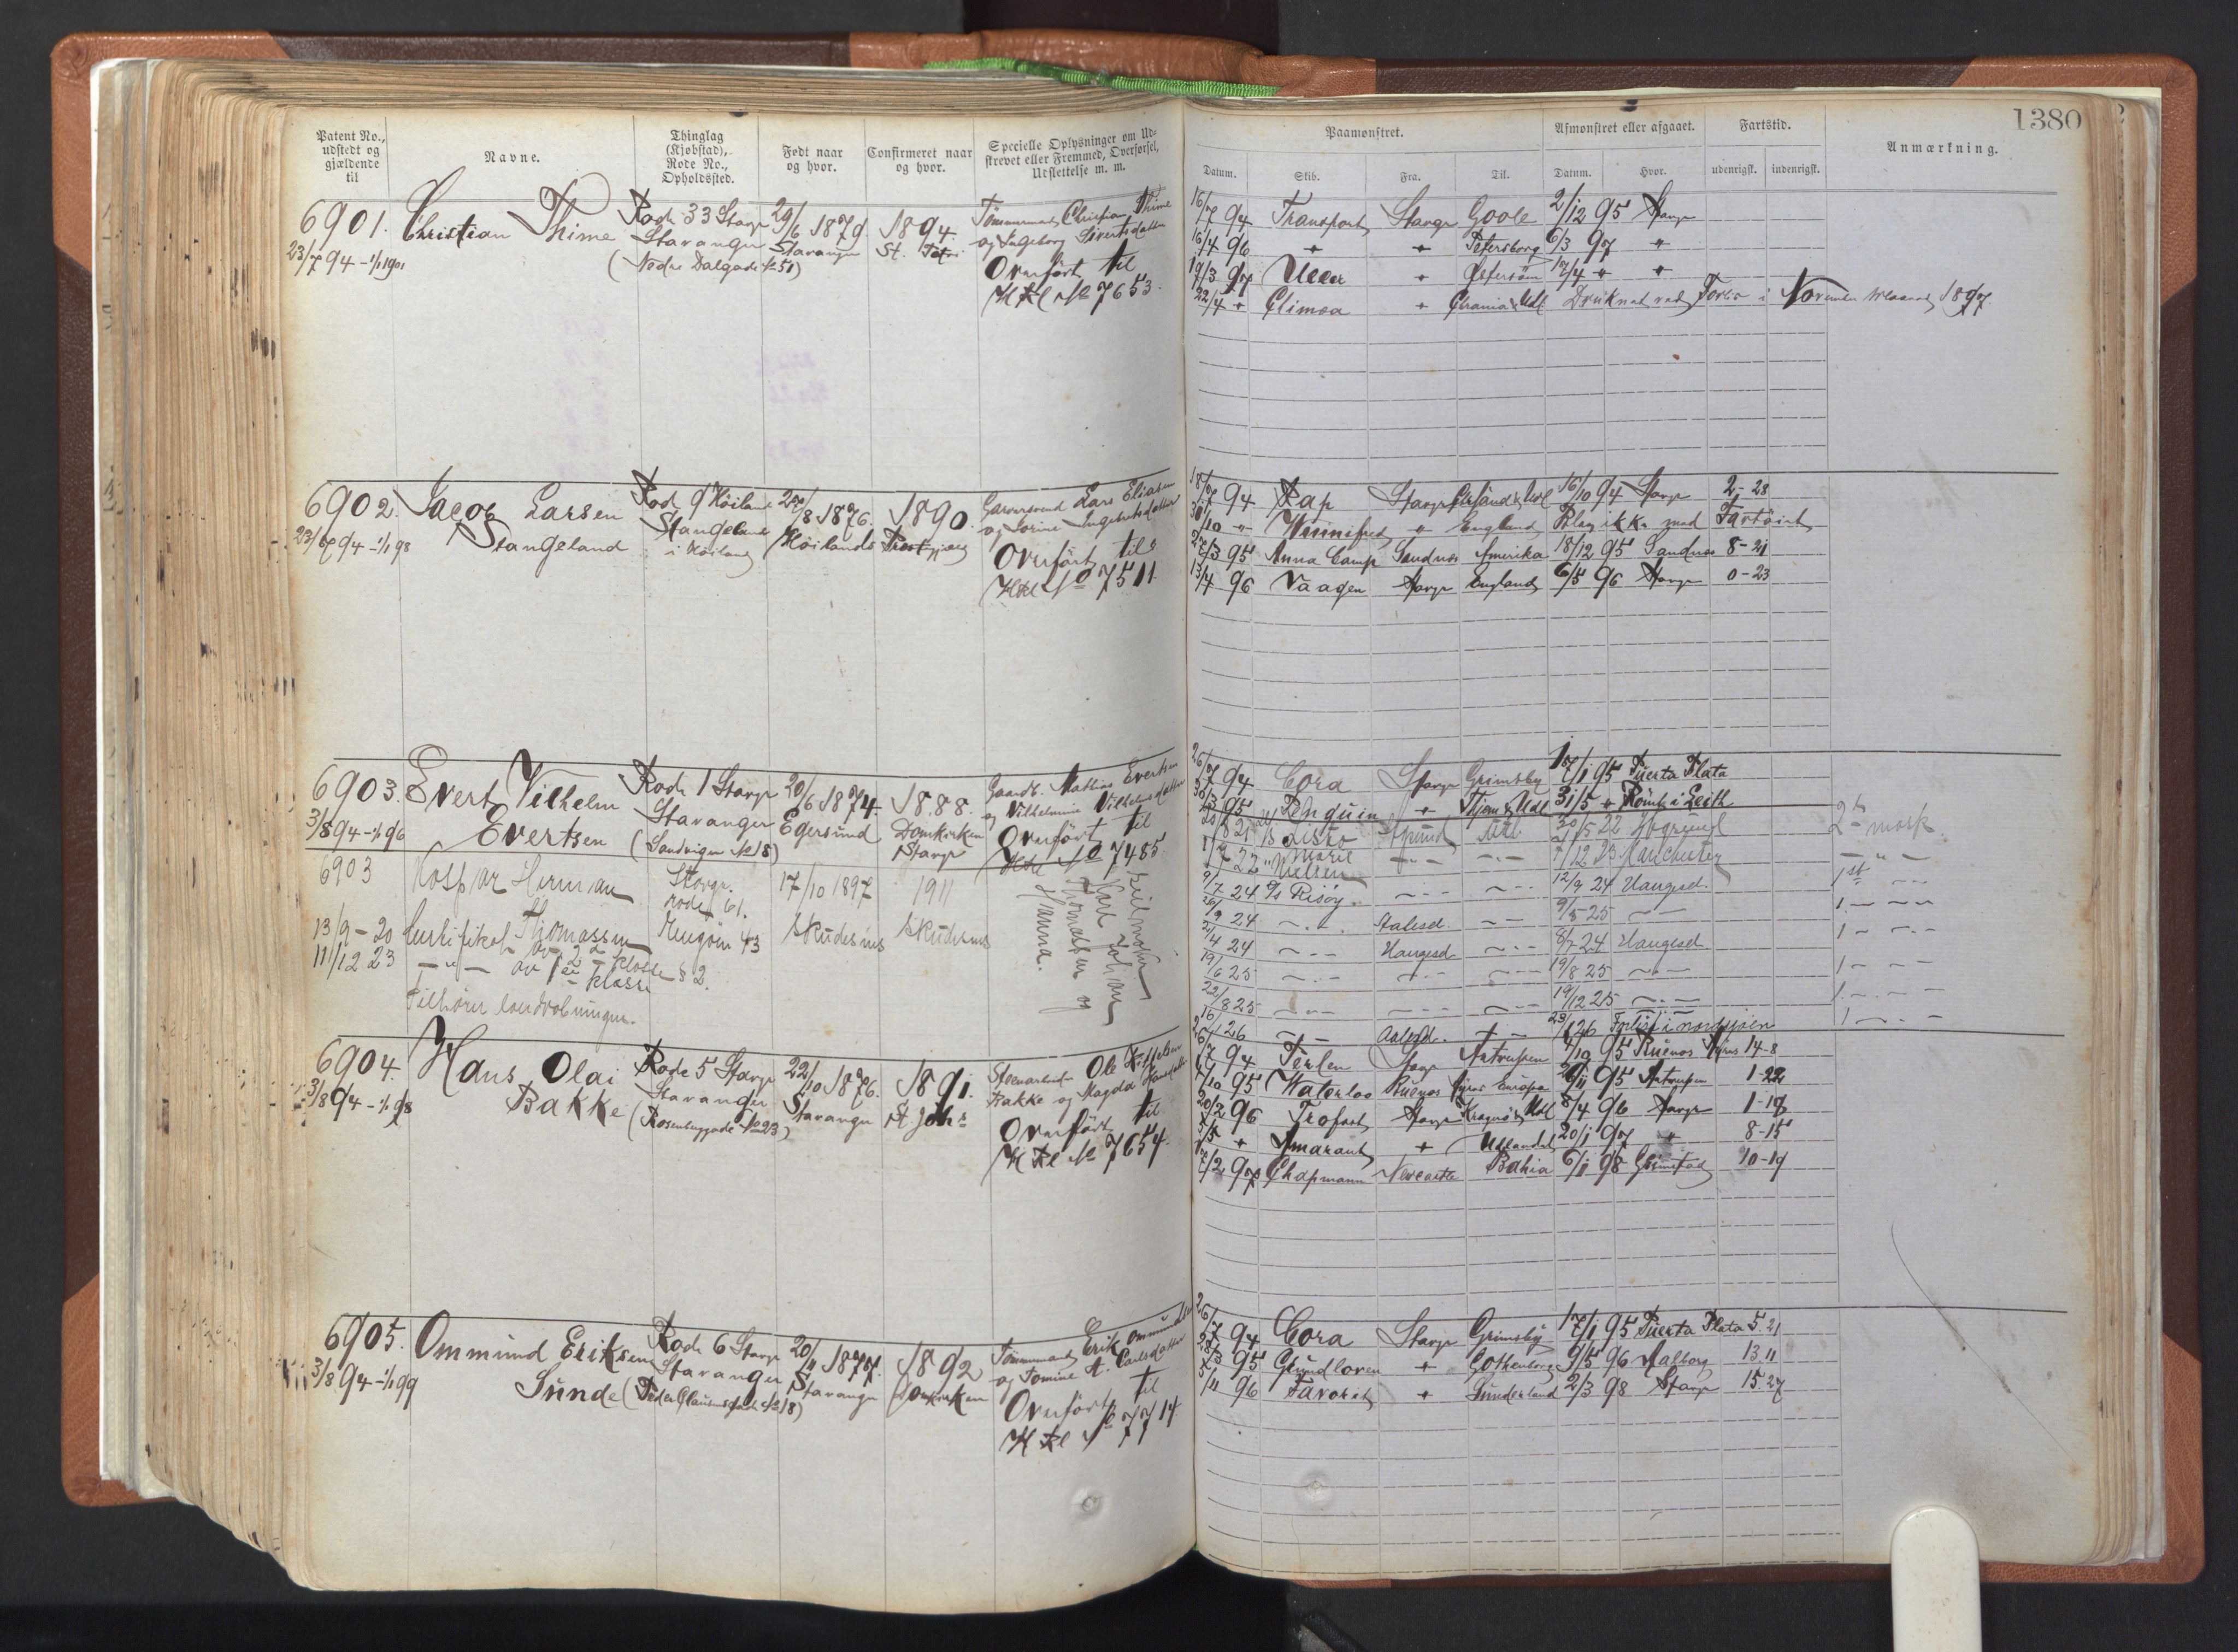 Patent No., udstedt og gjældende til
Navne.
Thinglag (Kjøbstad), Rode No., Opholdssted.
Født naar og hvor.
Confirmeret naar og hvor.
Specielle Oplysninger om Udskrevet eller Fremmed, Overførsel, Udslettelse m. m.
6901. Christian Thime Rode 33 Stavgr 29/6 1879 1894
23/7 94 - 1/1 1901 Stavanger Stavanger St.
(Nedre Dalgade No 51)
Tømmermand Christian Thime
og Ingeborg Sivertsdatter
Overført til
HRl No 7653.
6902. Jacob Larsen Rode 9 Høiland 1876. 1890.
Stangeland Stangeland Høilands Præstegjæld
23/7 94 - 1/1 98 i Høiland
Garversvend Lars Eliasen
Overført til
HRl No 7511.
6903. Evert Vilhelm Rode 1 Stavgr 20/6 1874. 1888.
3/8 94 - 1/1 96 Evertsen Stavanger Egersund Domkirken
(Sandvigen No 18) Stavgr
Gaardb. Mathias Evertsen
og Vilhelmine Vilhelmsdatter
Overført til
No 7485.
6903 Kaspar Herman Stavgr. 17/10 1897 1911
rode 61.
13/9 - 20 Certifikat Thomassen 43 Skudesnes Skudesnes
av 2 klasse
11/12 23 — " — av 1 klasse § 2.
Tilhører landrobningen.
Seilmaker
Karl Johan
Thomassen og
Hanna.
6904. Hans Olai Rode 5 Stavgr 22/10 1876. 1891.
3/8 94 - 1/1 98 Bakke Stavanger Stavanger St Johs
(Rosenberggade No 23)
Ole
Bakke og Magda
Overført til
HRl No 7654.
6905. Ommund Eriksen Rode 6 Stavgr 1892
3/8 94 - 1/1 99 Sunde Stavanger Stavanger Domkirken
(Peder Clausensgade No 18)
Tømmermand Erik Ommundsen
og Tomine A. Carlsdatter
Overført til
HRl No 7714.
1380
Paamønstret.
Afmønstret eller afgaaet.
Fartstid.
Anmærkning.
Datum. Skib. Fra. Til. Datum. Hvor. udenrigsk. indenrigsk.
16/7 94 Transport Stavgr Goole 2/12 95 Stavgr
16/4 96 " " Petersborg 6/3 97 "
19/3 97 " 17/4 " "
22/4 " Climax " Chrania & Udl Druknet ved i November Maaned 1897.
18/7 94 Rap Stavgr Chrsand & Udl 16/10 94 Stavgr 2-28
30/10 " Winnifred " England Blev ikke med Fartøiet
95 Anna Camp Sandnes Amerika 18/12 95 Sandnes 8-21
13/4 96 Vaagen Stavgr England 6/5 96 Stavgr 0-23
26/7 94 Cora Stavgr Grimsby 17/1 95 Puerta Plata
95 Penguin " & Udl 31/5 " Rømt i Leith
Lisbo Udl 22 2 mask.
22 Marie Nielsen —"— —"— 12 23 Manchester —"—
9/7 24 Risøy —"— —"— 12/9 24 Haugesd. 1st —"—
26/9 24 —"— Stalesd. —"— 9/5-25 —"— 1.—"—
24 —"— Haugesd —"— 24 Haugesd. 1—"—
19/6 25 —"— —"— —"— 19/8 25 —"— 1—"—
22/8 25 —"— —"— 19/12 25 —"— 1.—"—
16/1 26 —"— Aalesd. —"— 26 Forlist i nordsjøen 1—"—
26/7 94 Terlen Stavgr Antverpen 10 95 Buenos Ayres 14-8
10 95 Waterloo Buenos Ayres Europa 11 95 Antverpen 1-22
20/2 96 Trofast Stavgr Kragerø & Udl 8/4 96 Stavgr 1-18
5/5 " Amarant " Udlandet 20/1 97 " 8-15
2 97 Chapmann Newcastle Bahia 6/1 98 Grimstad 10-19
26/7 94 Cora Stavgr Grimsby 17/1 95 Puerta Plata 5.21
28/3 95 Grundloven " Gothenborg 9/5 96 Aalborg 13.11
5/11 96 Favorit " Sunderland 2/3 98 Stavgr 15.27